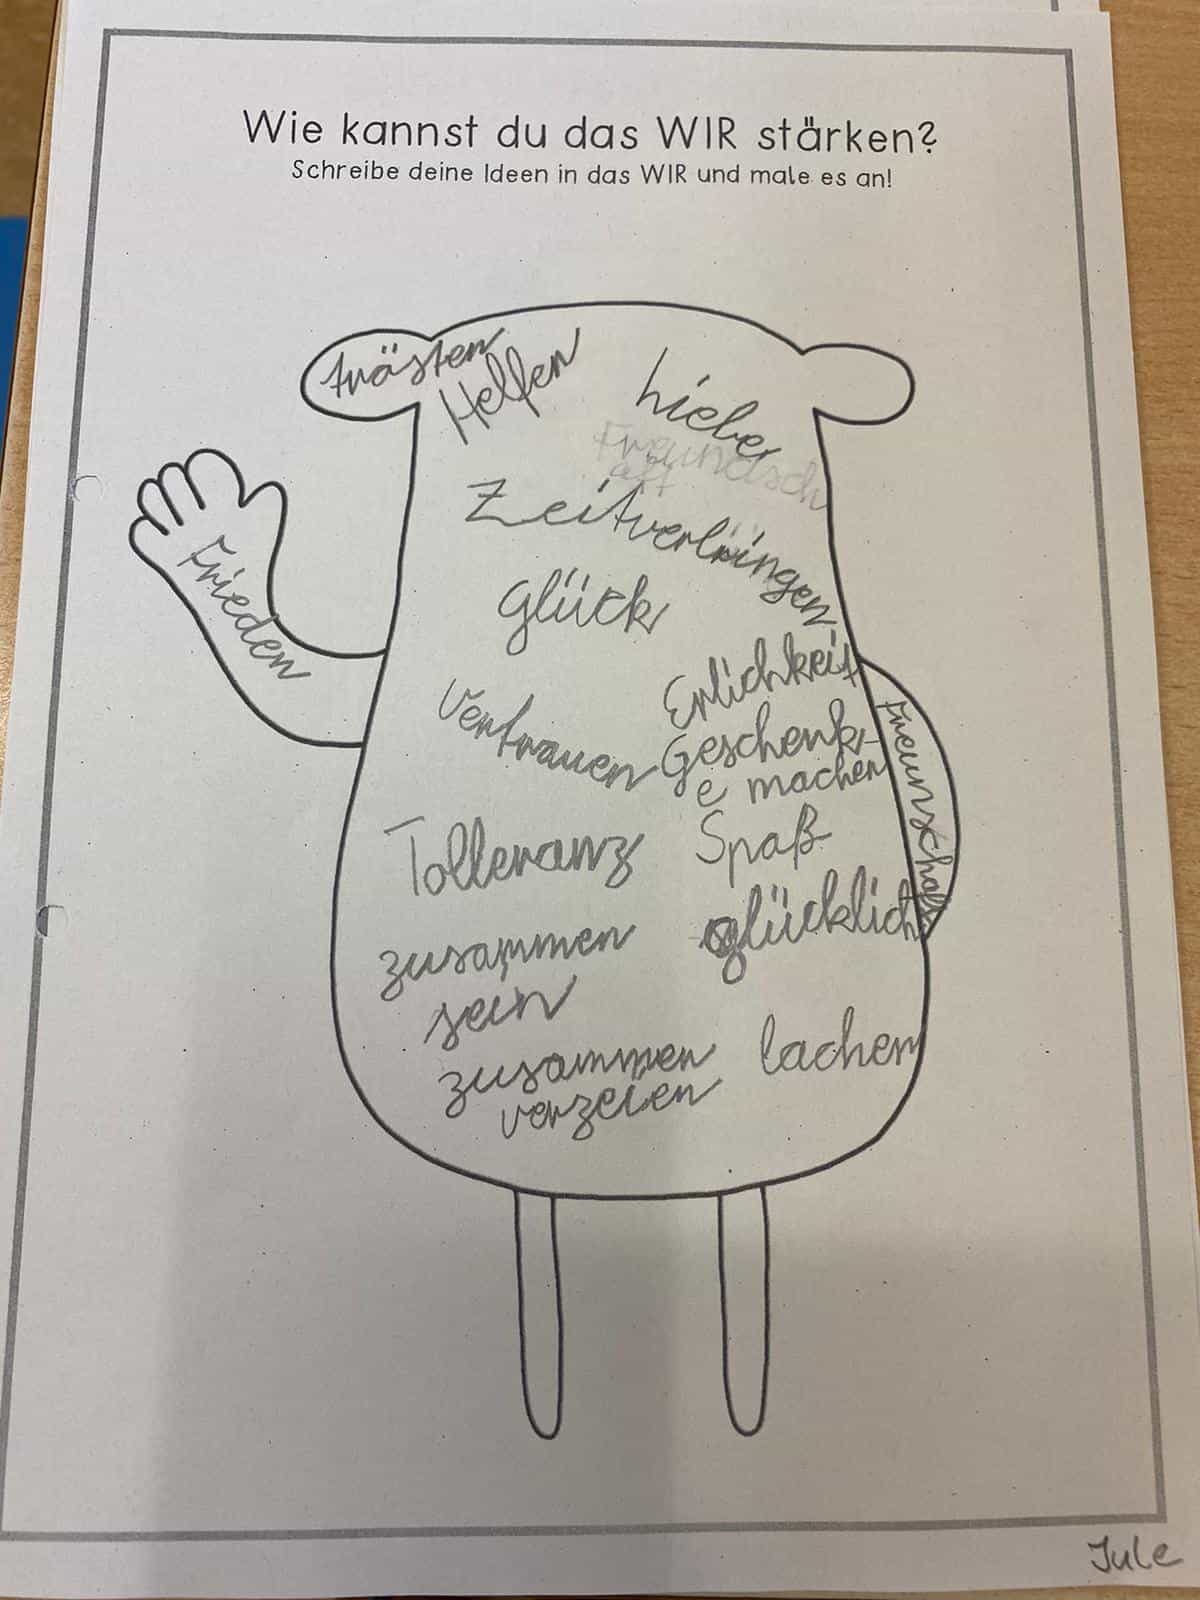 Wie kannst du das WIR stärken?
Schreibe deine Ideen in das WIR und male es an!
trästen
Helfen
Lieber
Freundsch
aft
Zeitverbringen
Glück
Frieden
Erlichkeit
Vertrauen
Geschenk-
e machen
Freunschaft
Tolleranz
Spaß
glücklich
zusammen
sein
zusammen
verzeien
lachen
Jule